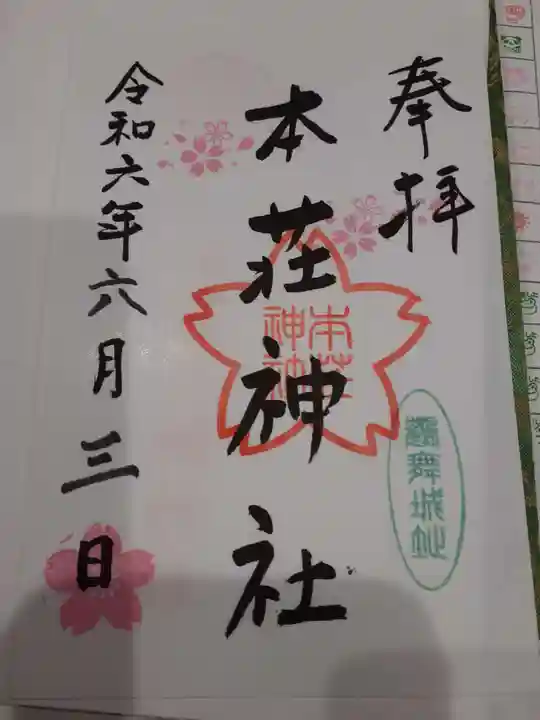 奉拝
本荘神社
本荘神社
鶴舞城址
令和六年六月三日